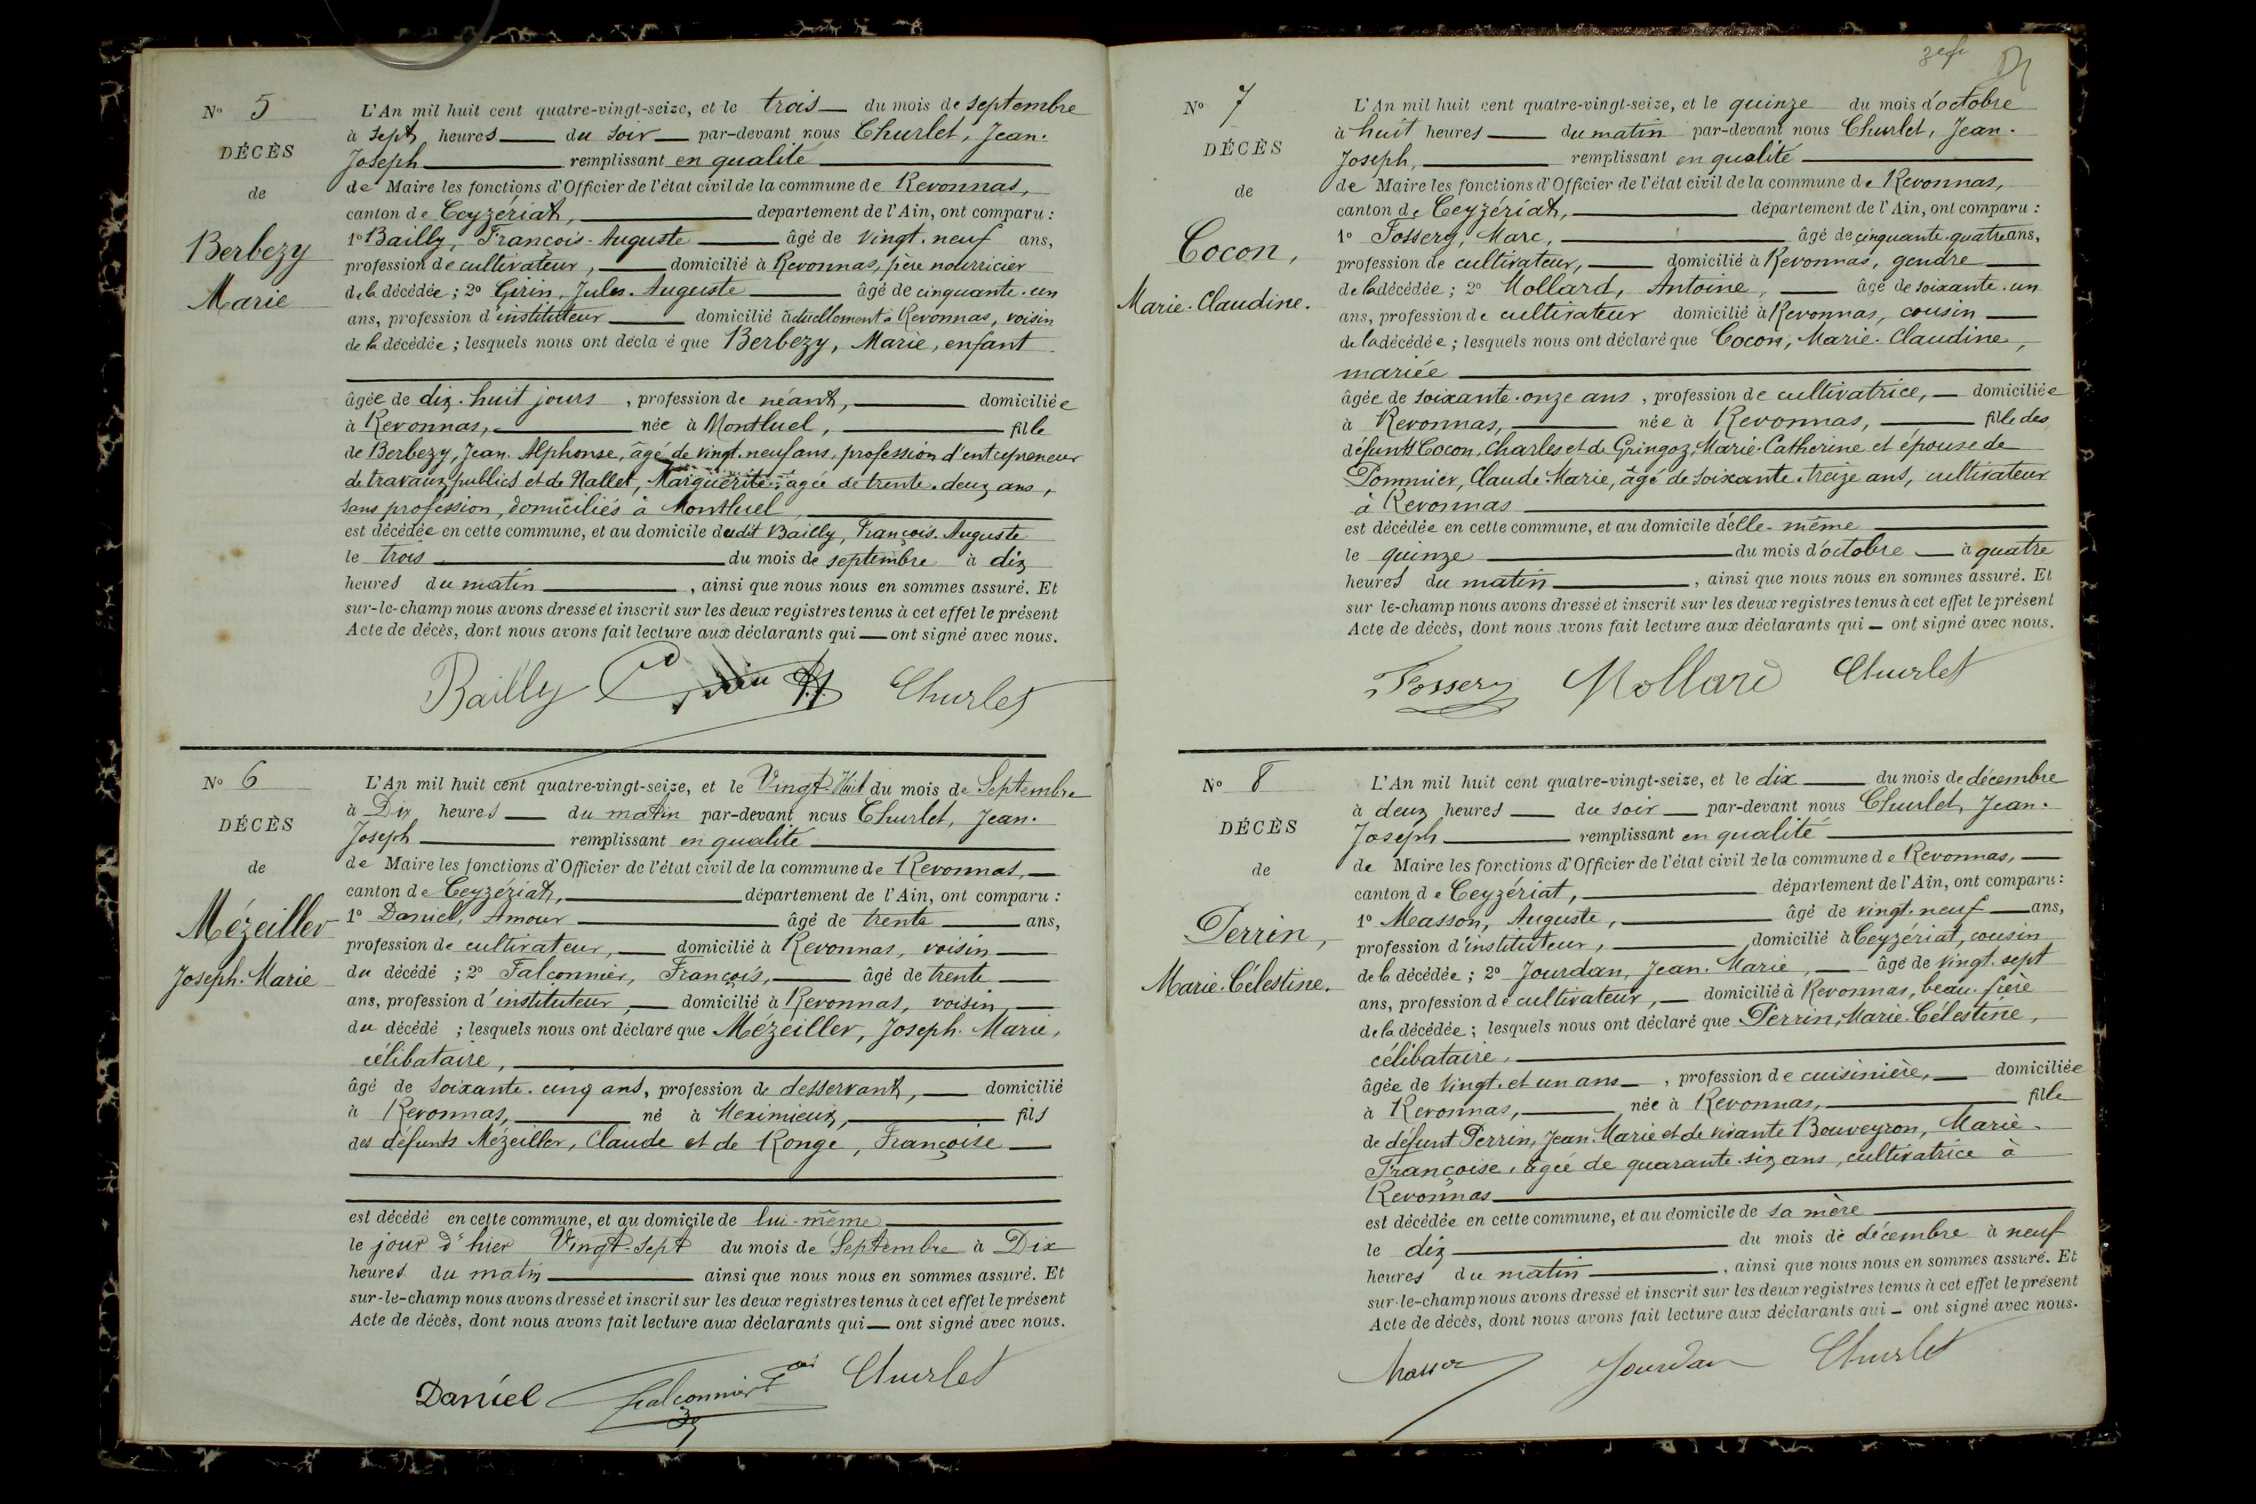 N° 5
DÉCÈS
de
Berbezy
Marie
L'An mil huit cent quatre-vingt-seize, et le trois du mois de septembre
à sept heures du soir par-devant nous Churlet, Jean-
Joseph remplissant en qualité
de Maire les fonctions d'Officier de l'état civil de la commune de Revonnas,
canton de Ceyzériat, département de l'Ain, ont comparu :
1° Bailly, François-Auguste âgé de vingt-neuf ans,
profession de cultivateur, domicilié à Revonnas, père nourricier
de la décédée ; 2° Girin, Jules-Auguste âgé de cinquante-un
ans, profession d'instituteur domicilié actuellement à Revonnas, voisin
de la décédée ; lesquels nous ont déclaré que Berbezy, Marie, enfant
âgée de dix-huit jours, profession de néant, domiciliée
à Revonnas, née à Montluel, fille
de Berbezy, Jean-Alphonse, âgé de vingt-neuf ans, profession d'entrepreneur
de travaux publics et de Nallet, Marguerite, âgée de trente-deux ans,
sans profession, domiciliés à Montluel,
est décédée en cette commune, et au domicile dudit Bailly, François-Auguste
le trois du mois de septembre à dix
heures du matin, ainsi que nous nous en sommes assuré. Et
sur-le-champ nous avons dressé et inscrit sur les deux registres tenus à cet effet le présent
Acte de décès, dont nous avons fait lecture aux déclarants qui ont signé avec nous.
Bailly Girin Churlet
N° 6
DÉCÈS
de
Mézeiller
Joseph-Marie
L'An mil huit cent quatre-vingt-seize, et le Vingt-Huit du mois de Septembre
à Dix heures du matin par-devant nous Churlet, Jean-
Joseph remplissant en qualité
de Maire les fonctions d'Officier de l'état civil de la commune de Revonnas,
canton de Ceyzériat, département de l'Ain, ont comparu :
1° Daniel, Amour âgé de trente ans,
profession de cultivateur, domicilié à Revonnas, voisin
du décédé ; 2° Falconnier, François, âgé de trente
ans, profession d'instituteur, domicilié à Revonnas, voisin
du décédé ; lesquels nous ont déclaré que Mézeiller, Joseph-Marie,
célibataire,
âgé de soixante-cinq ans, profession de desservant, domicilié
à Revonnas, né à Meximieux, fils
des défunts Mézeiller, Claude et de Ronge, Françoise
est décédé en cette commune, et au domicile de lui-même
le jour d'hier Vingt-Sept du mois de Septembre à Dix
heures du matin ainsi que nous nous en sommes assuré. Et
sur-le-champ nous avons dressé et inscrit sur les deux registres tenus à cet effet le présent
Acte de décès, dont nous avons fait lecture aux déclarants qui ont signé avec nous.
Daniel Falconnier Churlet
N° 7
DÉCÈS
de
Cocon,
Marie-Claudine.
L'An mil huit cent quatre-vingt-seize, et le quinze du mois d'octobre
à huit heures du matin par-devant nous Churlet, Jean-
Joseph, remplissant en qualité
de Maire les fonctions d'Officier de l'état civil de la commune de Revonnas,
canton de Ceyzériat, département de l'Ain, ont comparu :
1° Fossery, Marc, âgé de cinquante-quatre ans,
profession de cultivateur, domicilié à Revonnas, gendre
de la décédée ; 2° Mollard, Antoine, âgé de soixante-un
ans, profession de cultivateur domicilié à Revonnas, cousin
de la décédée ; lesquels nous ont déclaré que Cocon, Marie-Claudine,
mariée
âgée de soixante-onze ans, profession de cultivatrice, domiciliée
à Revonnas, née à Revonnas, fille des
défunts Cocon, Charles et de Gringoz, Marie-Catherine et épouse de
Pommier, Claude-Marie, âgé de soixante-treize ans, cultivateur
à Revonnas
est décédée en cette commune, et au domicile d'elle-même
le quinze du mois d'octobre à quatre
heures du matin, ainsi que nous nous en sommes assuré. Et
sur le-champ nous avons dressé et inscrit sur les deux registres tenus à cet effet le présent
Acte de décès, dont nous avons fait lecture aux déclarants qui ont signé avec nous.
Fossery Mollard Churlet
N° 8
DÉCÈS
de
Perrin,
Marie-Célestine.
L'An mil huit cent quatre-vingt-seize, et le dix du mois de décembre
à deux heures du soir par-devant nous Churlet, Jean-
Joseph remplissant en qualité
de Maire les fonctions d'Officier de l'état civil de la commune de Revonnas,
canton de Ceyzériat, département de l'Ain, ont comparu :
1° Masson, Auguste, âgé de vingt-neuf ans,
profession d'instituteur, domicilié à Ceyzériat, cousin
de la décédée ; 2° Jourdan, Jean-Marie, âgé de vingt-sept
ans, profession de cultivateur, domicilié à Revonnas, beau-frère
de la décédée ; lesquels nous ont déclaré que Perrin, Marie-Célestine,
célibataire,
âgée de vingt-et un ans, profession de cuisinière, domiciliée
à Revonnas, née à Revonnas, fille
de défunt Perrin, Jean-Marie et de vivante Bouveyron, Marie-
Françoise, âgée de quarante-six ans, cultivatrice à
Revonnas
est décédée en cette commune, et au domicile de sa mère
le dix du mois de décembre à neuf
heures du matin, ainsi que nous nous en sommes assuré. Et
sur-le-champ nous avons dressé et inscrit sur les deux registres tenus à cet effet le présent
Acte de décès, dont nous avons fait lecture aux déclarants qui ont signé avec nous.
Masson Jourdan Churlet